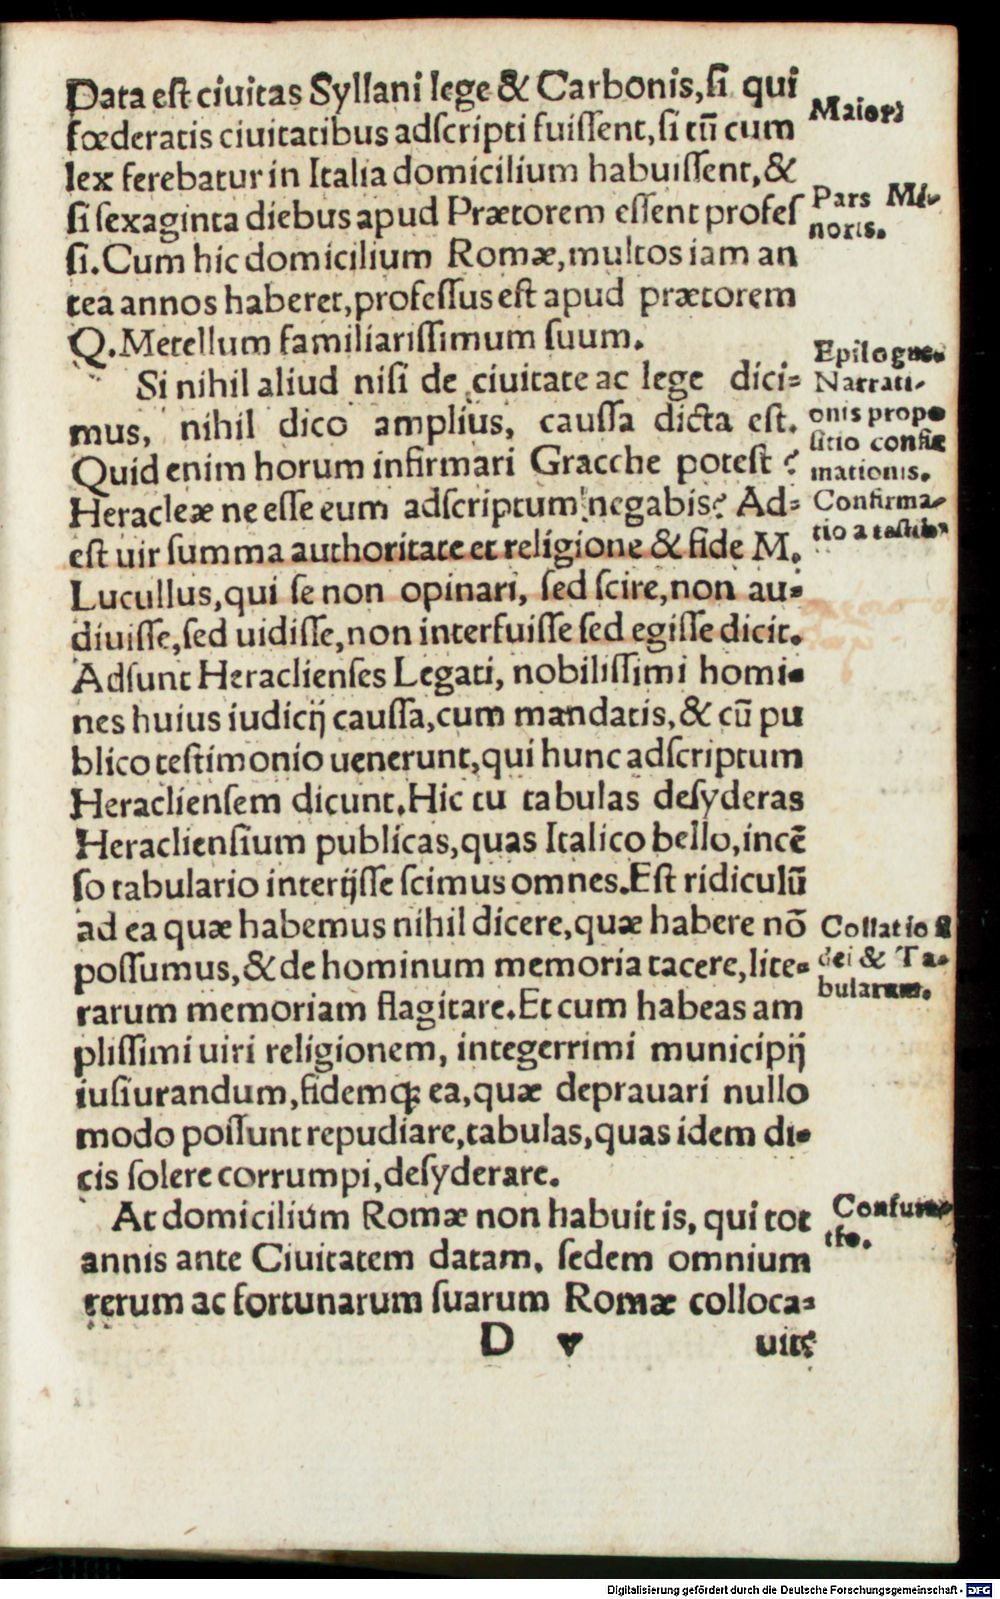 Data est ciuitas Syllani lege & Carbonis,si qui
fœderatis ciuitatibus adscripti fuissent,si tū cum
lex ferebatur in Italia domicilium habuissent,&
si sexaginta diebus apud Prætorem essent profes
si.Cum hic domicilium Romæ,multos iam an
tea annos haberet,professus est apud prætorem
Q.Metellum familiarissimum suum.
Si nihil aliud nisi de ciuitate ac lege dici=
mus, nihil dico amplius, caussa dicta est.
Quid enim horum infirmari Gracche potest?
Heracleæ ne esse eum adscriptum negabis? Ad=
est uir summa authoritate et religione & fide M.
Lucullus,qui se non opinari, sed scire,non au=
diuisse,sed uidisse,non interfuisse sed egisse dicit.
Adsunt Heraclienses Legati, nobilissimi homi=
nes huius iudicij caussa,cum mandatis,& cū pu
blico testimonio uenerunt,qui hunc adscriptum
Heracliensem dicunt.Hic tu tabulas desyderas
Heracliensium publicas,quas Italico bello,incē
so tabulario interijsse scimus omnes.Est ridiculū
ad ea quæ habemus nihil dicere,quæ habere nō
possumus,& de hominum memoria tacere,lite=
rarum memoriam flagitare.Et cum habeas am
plissimi uiri religionem, integerrimi municipij
iusiurandum,fidemq; ea,quæ deprauari nullo
modo possunt repudiare,tabulas,quas idem di=
cis solere corrumpi,desyderare.
At domicilium Romæ non habuit is, qui tot
annis ante Ciuitatem datam, sedem omnium
rerum ac fortunarum suarum Romæ colloca=
D v
uit?
Maior
Pars Mi-
noris.
Epilogus
Narrati-
onis propo
sitio confir
mationis.
Confirma-
tio a testib
Collatio fi
dei & Ta-
bularum.
Confuta
tio.
Digitalisierung gefördert durch die Deutsche Forschungsgemeinschaft - DFG